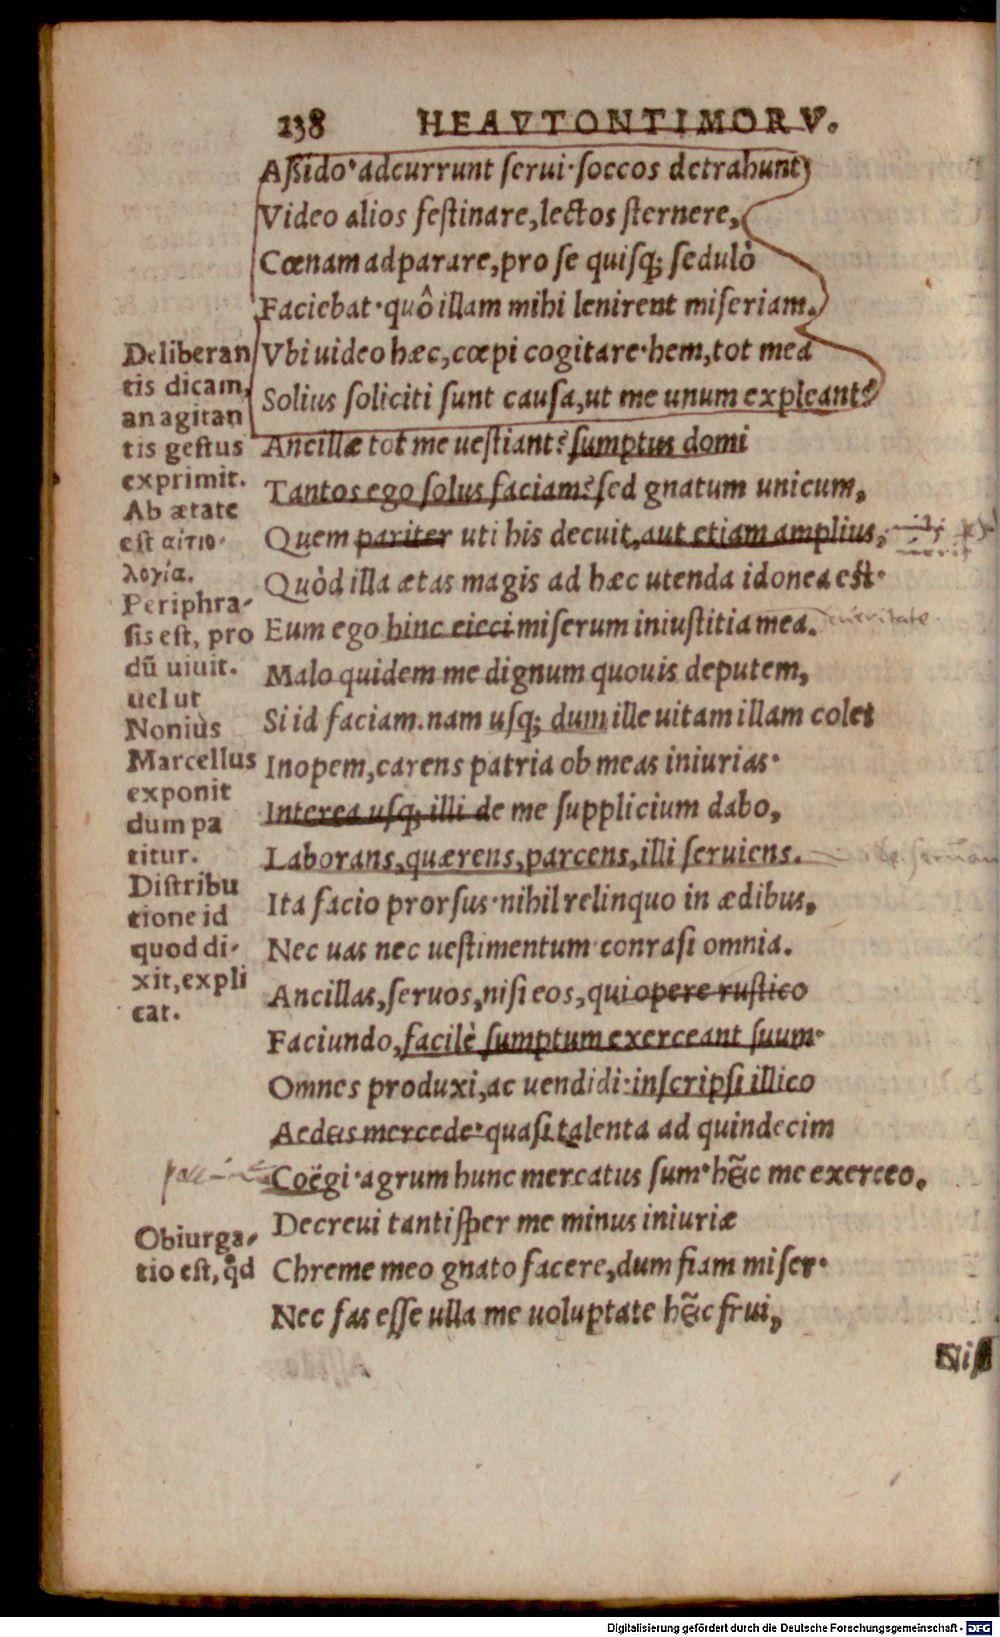 138 HEAVTONTIMORV.
Aſſido· adcurrunt ſerui·ſoccos detrahunt,
Video alios feſtinare,lectos ſternere,
Cœnam adparare,pro ſe quiſq; ſedulò
Faciebat·quô illam mihi lenirent miſeriam.
Vbi uideo hæc,cœpi cogitare·hem,tot mea
Solius ſoliciti ſunt cauſa,ut me unum expleant?
Ancillæ tot me ueſtiant? ſumptus domi
Tantos ego ſolus faciam? ſed gnatum unicum,
Quem pariter uti his decuit,aut etiam amplius,
Quòd illa ætas magis ad hæc utenda idonea eſt·
Eum ego hinc eieci miſerum iniuſtitia mea.
Malo quidem me dignum quouis deputem,
Si id faciam.nam uſq; dum ille uitam illam colet
Inopem,carens patria ob meas iniurias·
Interea uſq; illi de me ſupplicium dabo,
Laborans,quærens,parcens,illi ſeruiens.
Ita facio prorſus·nihil relinquo in ædibus,
Nec uas nec ueſtimentum·conraſi omnia.
Ancillas,ſeruos,niſi eos,qui opere ruſtico
Faciundo,facilè ſumptum exerceant ſuum·
Omnes produxi,ac uendidi·inſcripſi illico
Aedeis mercede·quaſi talenta ad quindecim
Coëgi·agrum hunc mercatus ſum·hîc me exerceo.
Decreui tantiſper me minus iniuriæ
Chreme meo gnato facere,dum fiam miſer·
Nec fas eſſe ulla me uoluptate hîc frui,
Niſi
Deliberan
tis dicam,
an agitan
tis geſtus
exprimit.
Ab ætate
eſt αἰτιο-
λογία.
Periphra-
ſis eſt, pro
dū uiuit.
uel ut
Nonius
Marcellus
exponit
dum pa
titur.
Diſtribu
tione id
quod di-
xit,expli
cat.
Obiurga-
tio eſt, qd
Digitalisierung gefördert durch die Deutsche Forschungsgemeinschaft - DFG